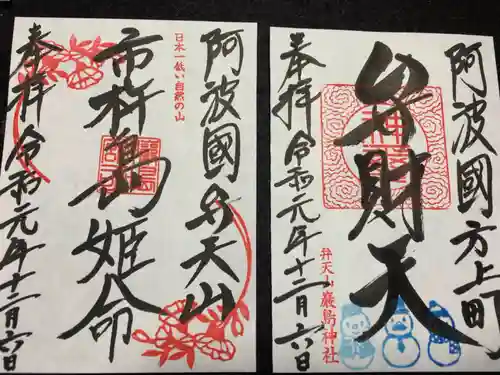 阿波國弁天山
日本一低い自然の山
市杵島姫命
奉拝 令和元年十二月六日
阿波國方上町
弁財天
弁天山厳島神社
奉拝 令和元年十二月六日